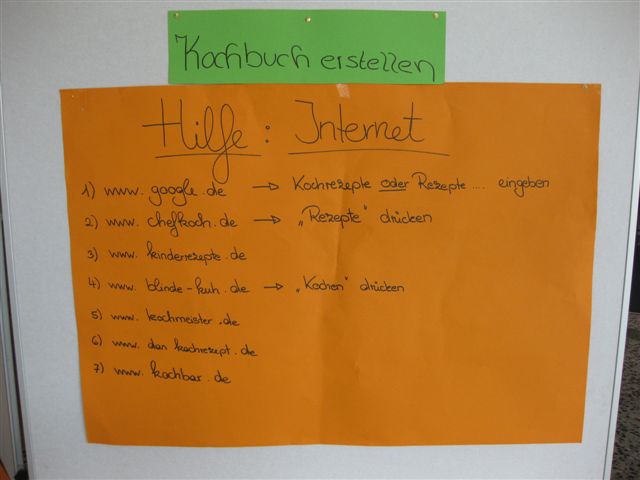 Kochbuch erstellen
Hilfe : Internet
1) www. google.de → Kochrezepte oder Rezepte .... eingeben
2) www. chefkoch.de → „Rezepte" drücken
3) www. kinderrezepte.de
4) www. blinde-kuh.de → „Kochen" drücken
5) www. kochmeister.de
6) www. dan kochrezept.de
7) www. kochbar.de